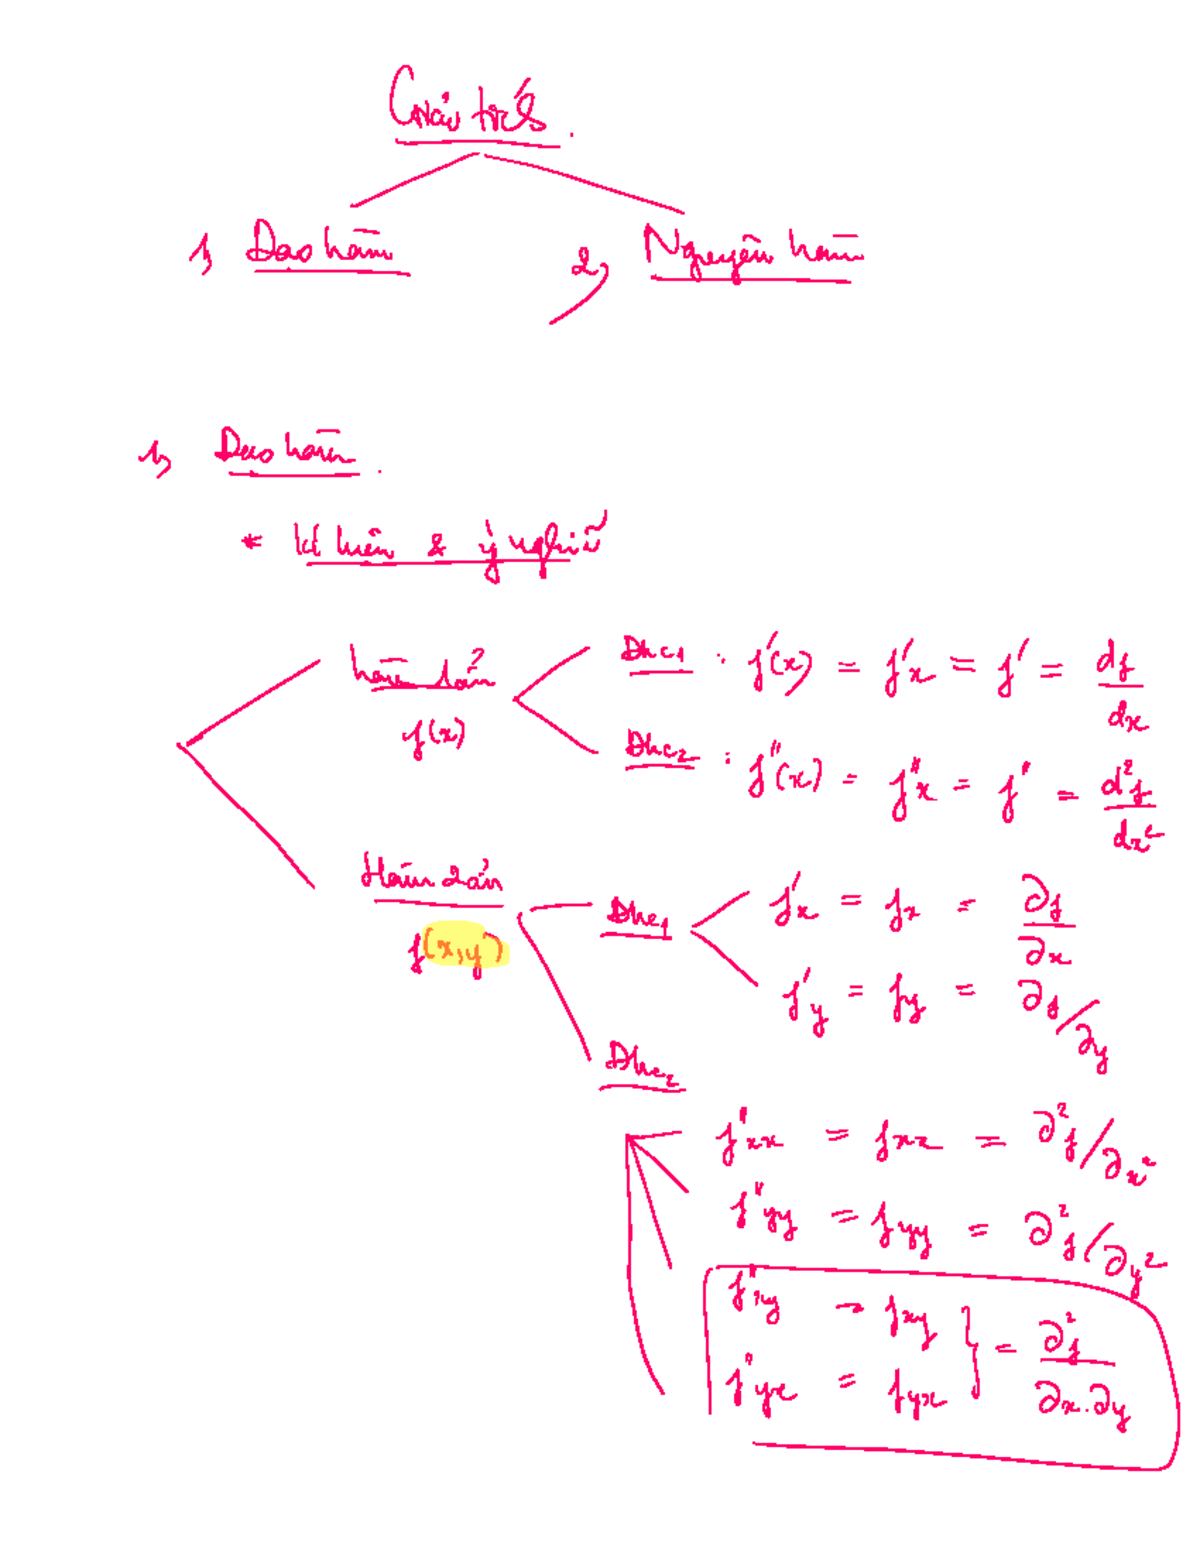 Giải tích.
1, Đạo hàm 2, Nguyên hàm
1, Đạo hàm.
* Kí hiệu & ý nghĩa
hàm 1 ẩn
f(x)
Đhc1 : f'(x) = f'x = f' = df/dx
Đhc2 : f''(x) = f''x = f'' = d²f/dx²
Hàm 2 ẩn
f(x,y)
Đhc1
f'x = fx = ∂f/∂x
f'y = fy = ∂f/∂y
Đhc2
f''xx = fxx = ∂²f/∂x²
f''yy = fyy = ∂²f/∂y²
f''xy → fxy
f''yx = fyx } = ∂²f/∂x.∂y